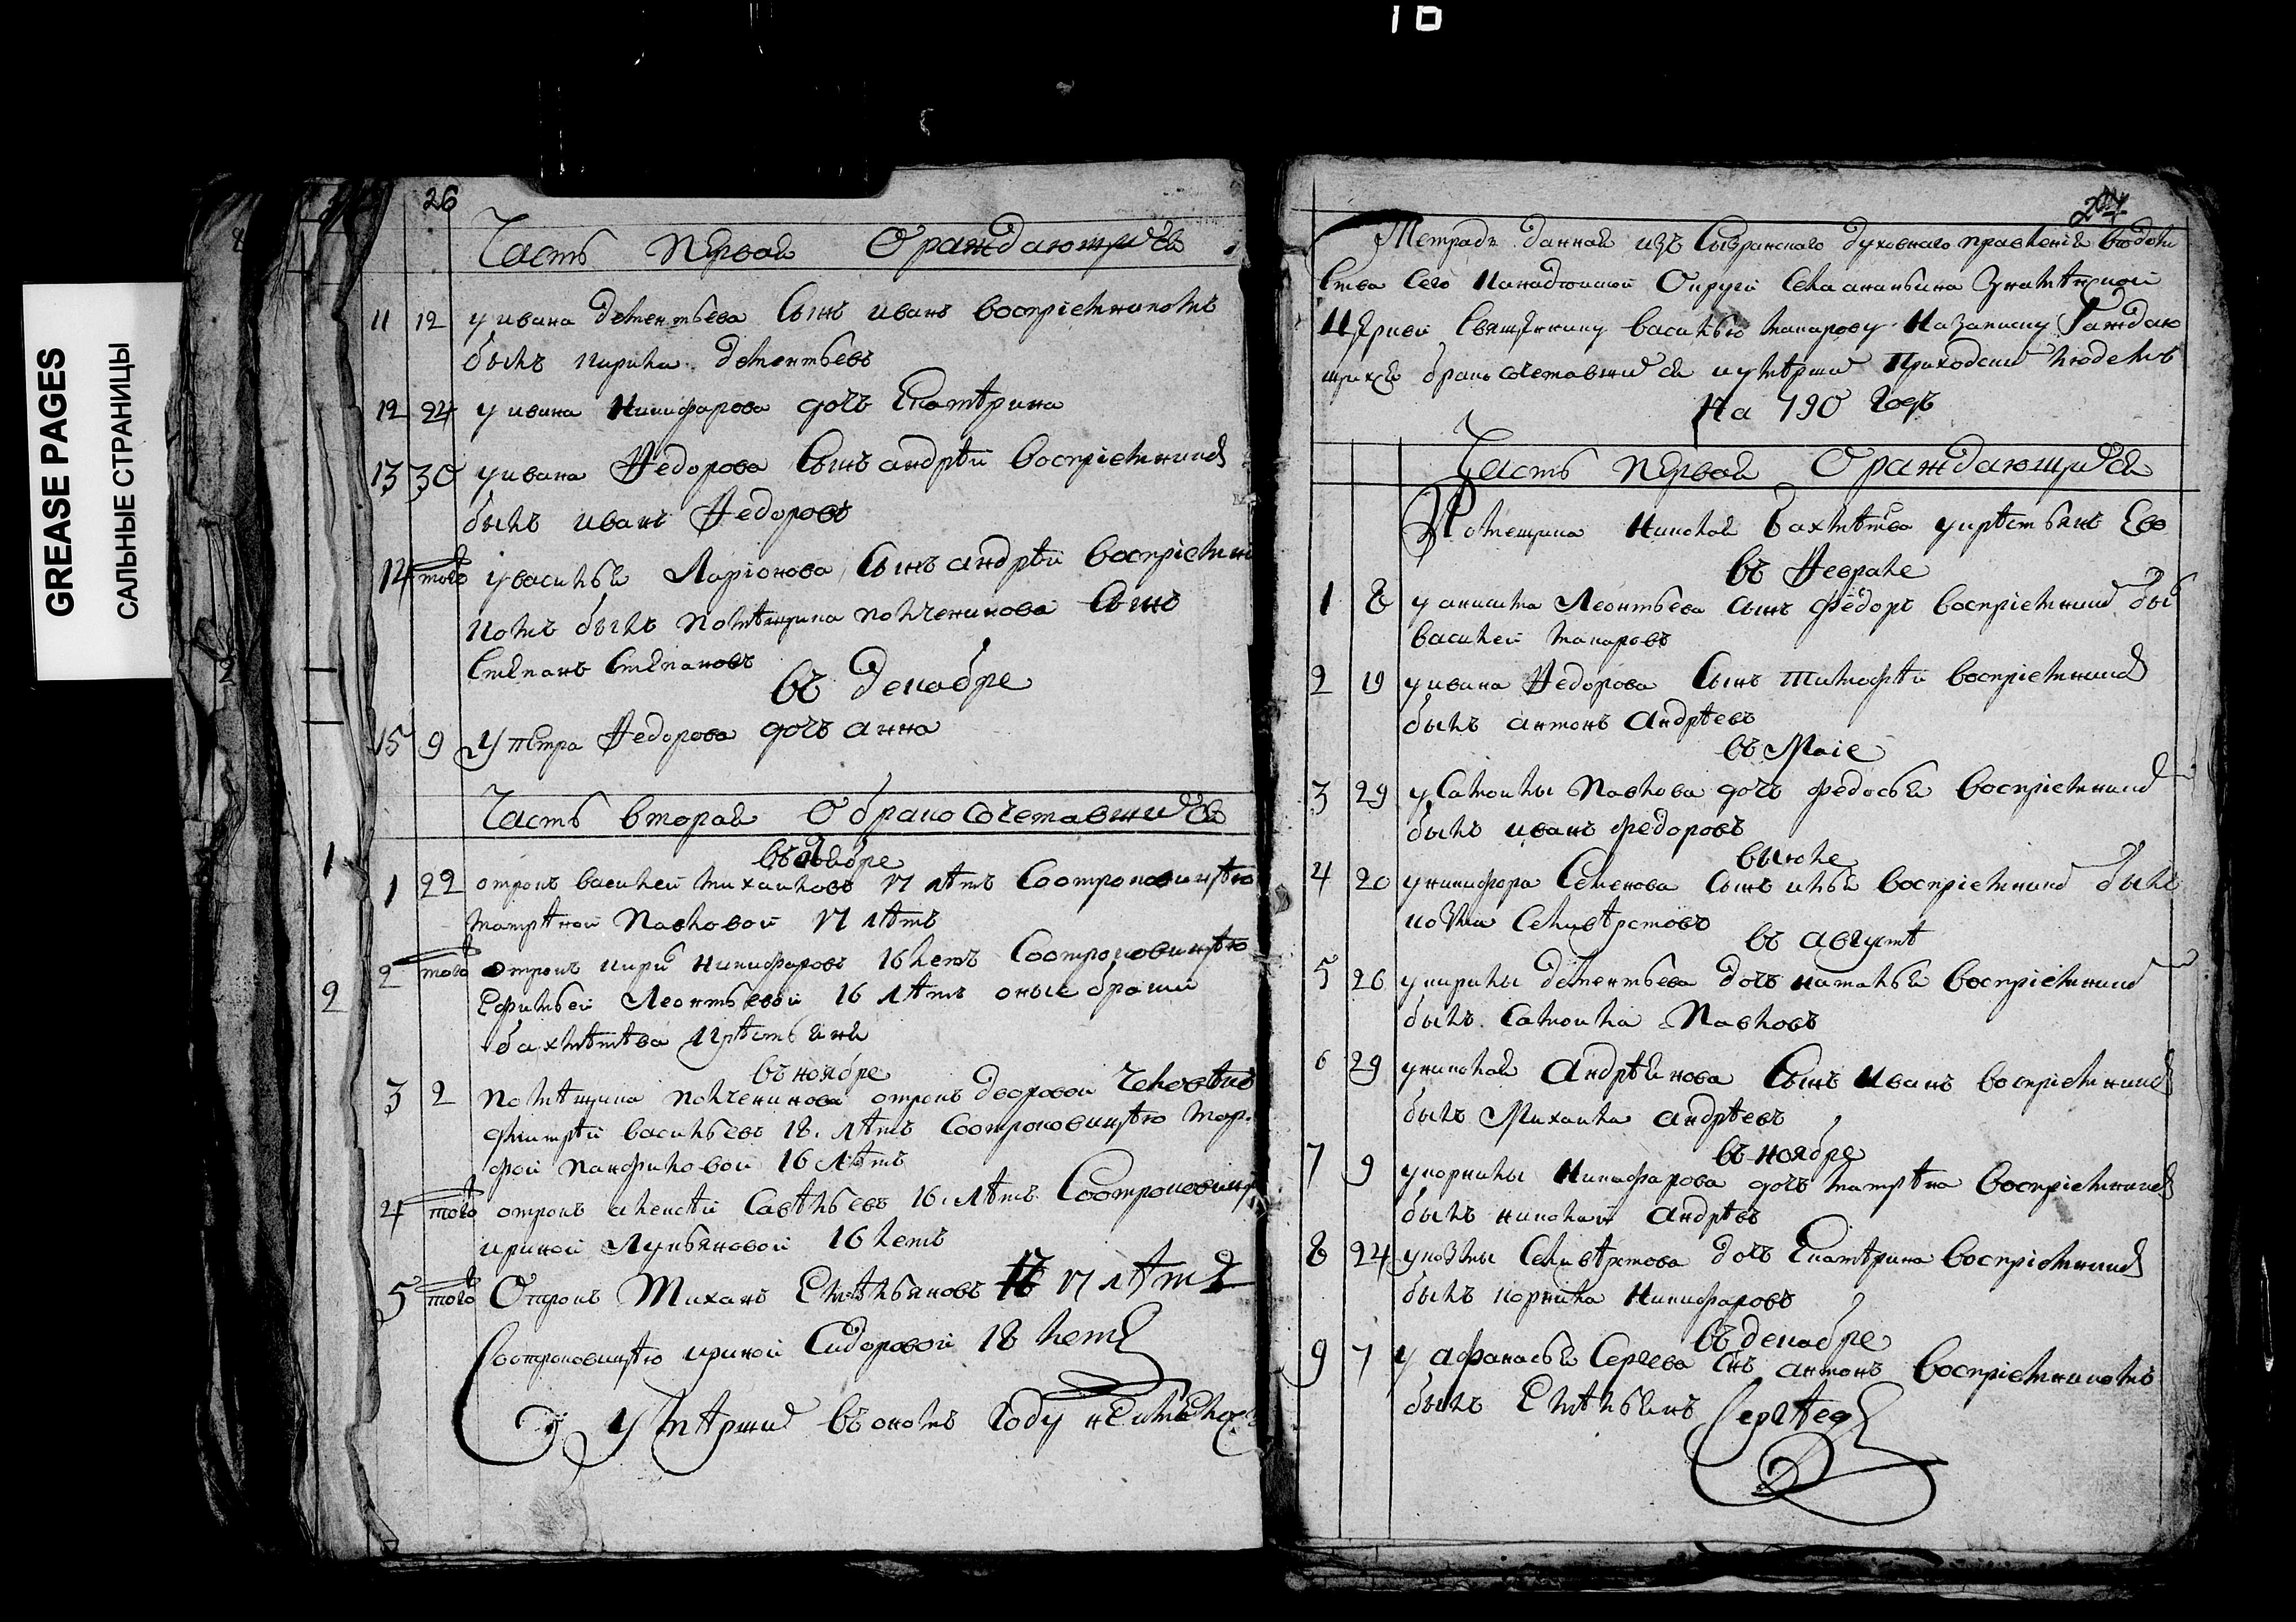 10
GREASE PAGES
САЛЬНЫЕ СТРАНИЦЫ
26
Часть первая О раждающихся
11 12 у ивана дементьева сынъ иванъ воспріемникомъ
былъ кирила дементьевъ
12 24 у ивана Никифарова дочь Екатѣрина
13 30 у ивана Федорова сынъ андрѣй воспріемникъ
былъ иванъ Федоровъ
14 того у василья Ларіонова сынъ андрѣй воспріемни
комъ былъ помѣщика полченинова сынъ
степанъ степановъ
въ Декабре
15 9 У петра Федорова дочь анна
Часть вторая О бракосочетавшихся
1 22 отрокъ василей михайловъ 17 лѣтъ со отроковицѣю
матрѣной Павловой 17 лѣтъ
2 того отрокъ кирила никифаровъ 16 летъ со отроковицѣю
Ефимьей Леонтьевой 16 лѣтъ оные браки
бахметѣва крѣстьяня
въ ноябре
3 2 помѣщика полченинова отрокъ дворовой человѣкъ
дмитрѣй васильевъ 18. лѣтъ со отроковицѣю мар
фой панфиловой 16 лѣтъ
4 того отрокъ алексѣй савѣльевъ 16. лѣтъ со отроковиц
ириной Лукьяновой 16 летъ
5 того Отрокъ Михаилъ Емѣльяновъ 17 лѣтъ
со отроковицѣю ириной Сидоровой 18 летъ
Умѣршихъ въ ономъ году не имѣлось
27
Тетрадь данная изъ Сызранского духовнаго правленія ведом
ства сего Канадѣйской Округи села ананьина Знамѣнской
Церкви священнику василью макарову На записку раждаю
щихся бракосочетавшихся и умѣршихъ Приходскихъ людемъ
На 790 Годъ
Часть первая О раждающихся
Помещика Николая Бахмѣтева у крѣстьянъ Ево
въ Феврале
1 8 у никита Леонтьева сынъ федоръ воспріемникъ бы
василей макаровъ
2 19 у ивана Федорова сынъ тимофѣй воспріемникъ
былъ антонъ андрѣевъ
въ Маіе
3 29 у самойлы Павлова дочь федосья воспріемникъ
былъ иванъ федоровъ
въ июле
4 20 у никифора Семенова сынъ илья воспріемникъ былъ
козма селивѣрстовъ
въ августѣ
5 26 у кирилы дементьева дочь наталья воспріемникъ
былъ самойла Павловъ
6 29 у николая андрѣянова сынъ иванъ воспріемникъ
былъ Михаила андрѣевъ
въ ноябре
7 9 у корнилы Никифарова дочь матрѣна воспріемникъ
былъ николай андрѣевъ
8 24 у козмы селивѣрстова дочь Екатѣрина воспріемникъ
былъ корнила Никифаровъ
въ декабре
9 7 у афанасья Сергева снъ антонъ воспріемникомъ
былъ Емѣльянъ Сергѣевъ